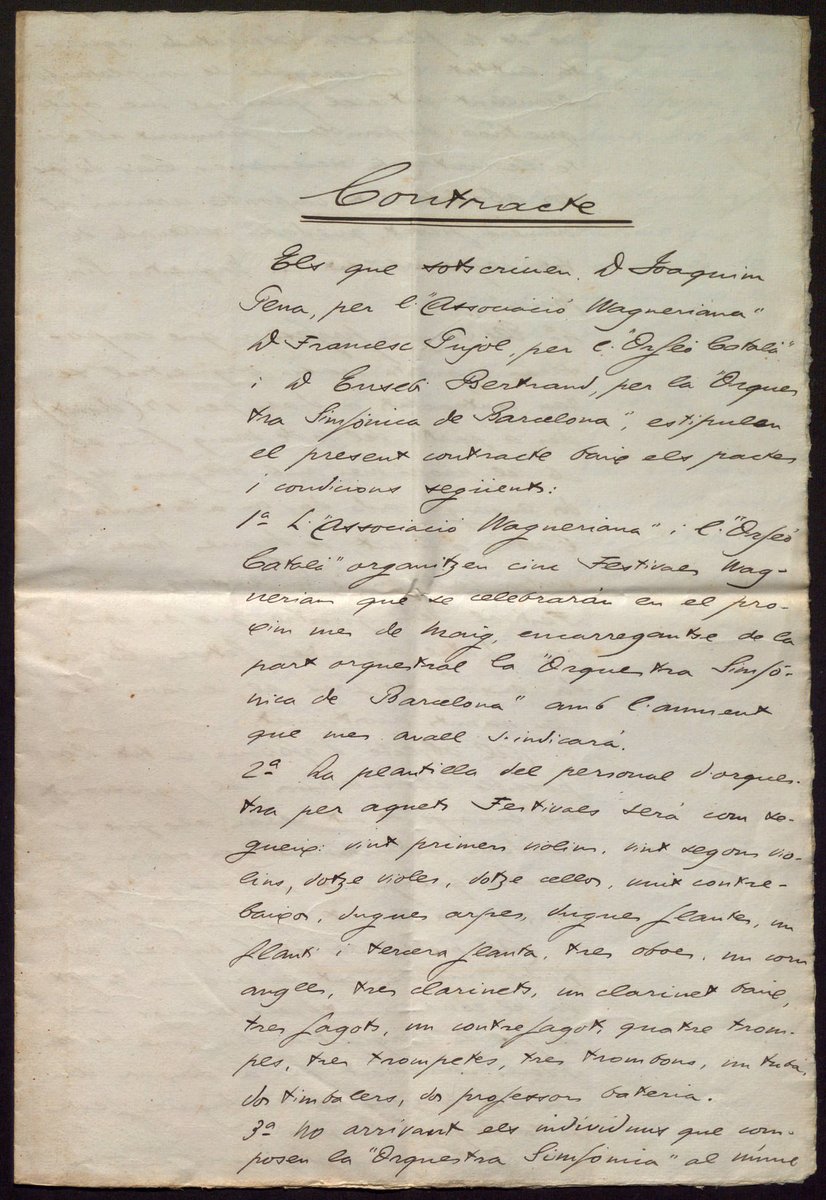 Contracte
Els que sotscriuen, D Joaquim
Pena, per l."Associació Wagneriana"
D Francesc Pujol, per l."Orfeó Català"
i D Eusebi Bertrand, per la "Orques
tra Simfònica de Barcelona", estipulen
el present contracte baix els pactes
i condicions següents:
1ª L."Associació Wagneriana" i l."Orfeó
Català" organitzen cinc Festivals Wag-
nerians que se celebrarán en el pro-
xim mes de Maig, encarregantse de la
part orquestral la "Orquestra Simfò-
nica de Barcelona" amb l.aument
que mes avall s.indicará.
2ª La plantilla del personal d.orques-
tra per aquets Festivals será com se-
gueix: vint primers violins, vint segons vio-
lins, dotze violes, dotze cellos, vuit contre-
baixos, dugues arpes, dugues flautes, un
flautí i tercera flauta, tres oboes, un corn
anglès, tres clarinets, un clarinet baix,
tres fagots, un contrefagot, quatre trom-
pes, tres trompetes, tres trombons, un tuba,
dos timbalers, dos professors bateria.
3ª No arrivant els individuus que com-
posen la "Orquestra Simfònica" al núme